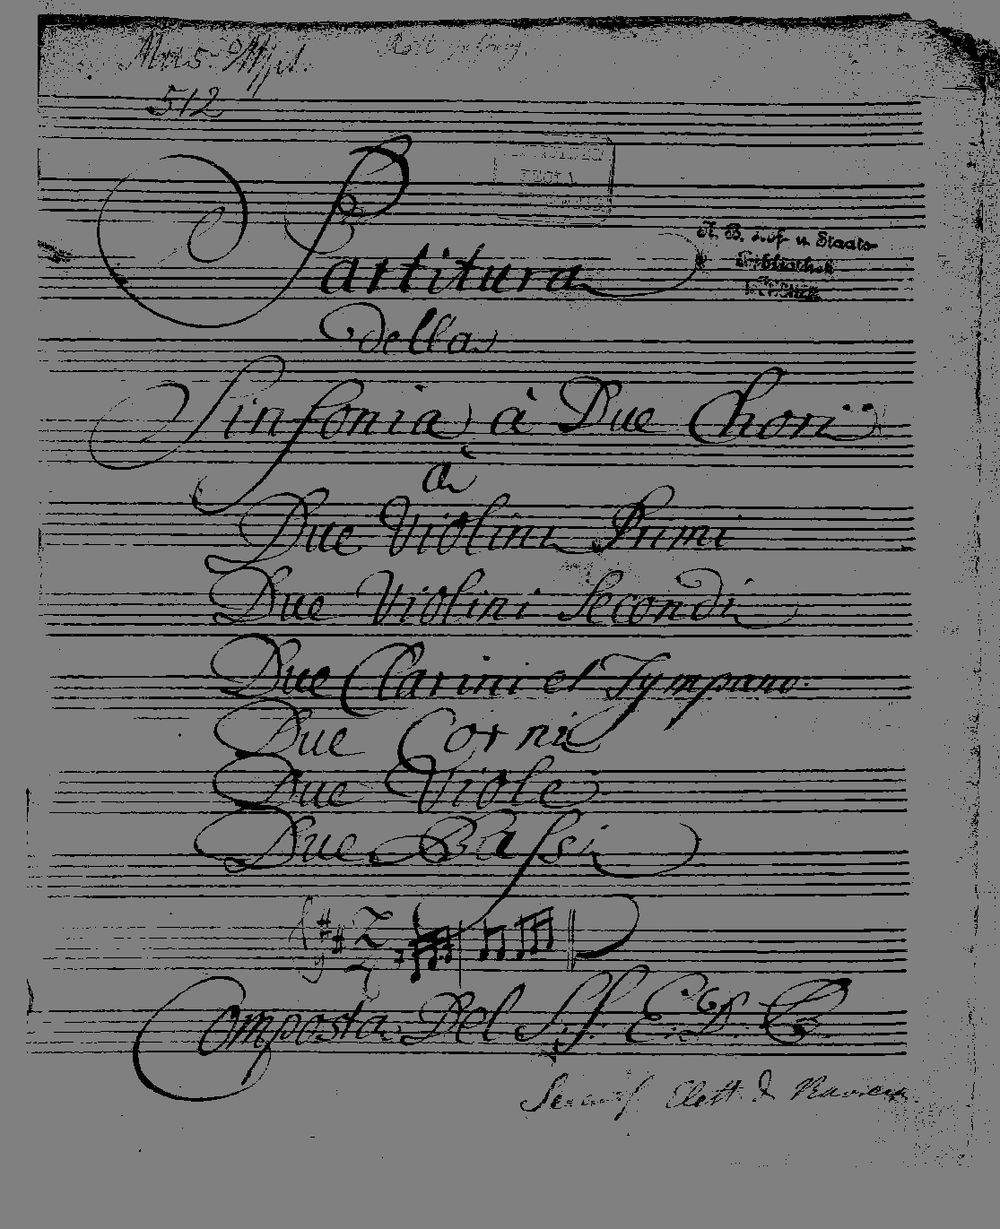 Mus. Msc.
512
Partitura
K. B. Hof u. Staats
Bibliothek
della
Sinfonia à Due Chori
à
Due Violini Primi
Due Violini Secondi
Due Clarini et Tympano
Due Corni
Due Viole
Due Bassi
Composta Del S. S. E. D. B.